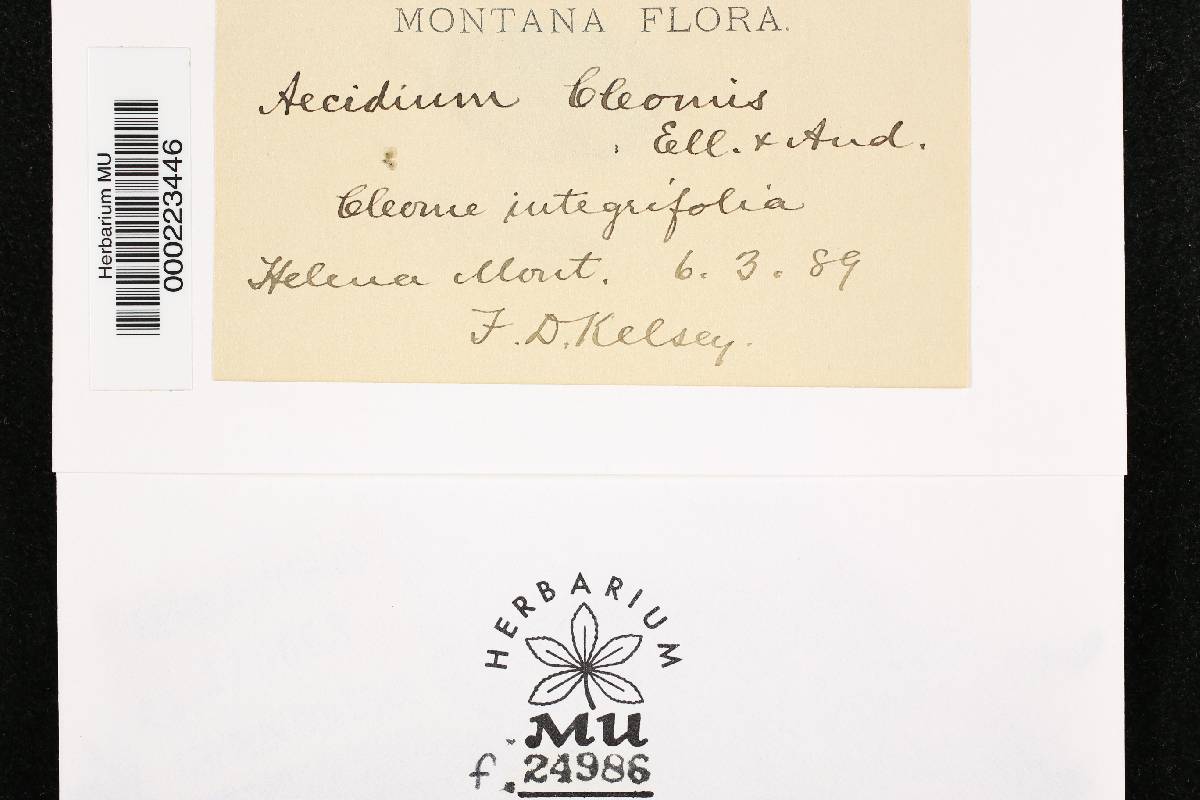 MONTANA FLORA.
Aecidium Cleomis
Ell. & And.
Cleome integrifolia
Helena Mont. 6. 3. 89
F. D. Kelsey.
Herbarium MU
000223446
HERBARIUM
MU
f. 24986